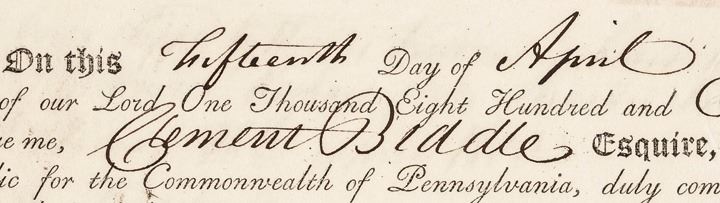 On this Fifteenth Day of April
of our Lord One Thousand Eight Hundred and
re me, Clement Biddle Esquire,
ic for the Commonwealth of Pennsylvania, duly com